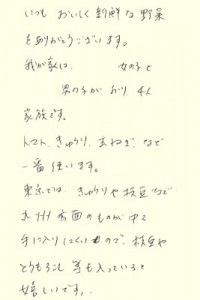 いつも おいしく 新鮮な野菜
をありがとうございます。
我が家は、 女の子と
男の子がおり、4人
家族です。
トマト、きゅうり、玉ねぎ、など
一番使います。
東京では、きゅうりや枝豆など
九州方面のものが中々
手に入りにくいもので、枝豆や
とうもろこし 等も入っていると
嬉しいです。